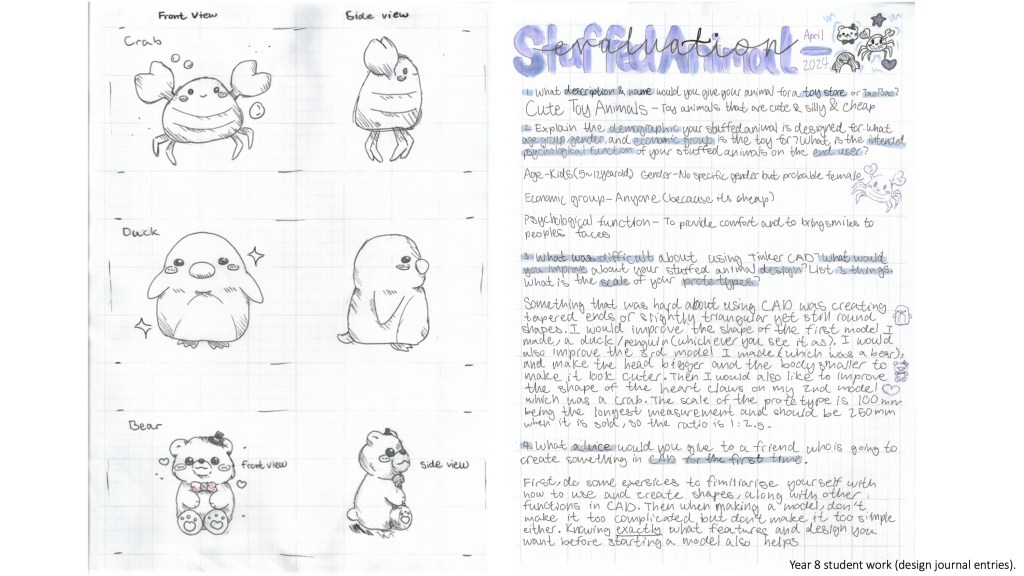 Front View
Side view
Crab
Duck
Bear
front view
side view
Stuffed Animal
evaluation
April
2024
1. What description & name would you give your animal for a toy store or TaoBao?
Cute Toy Animals - Toy animals that are cute & silly & cheap
2. Explain the demographic your stuffed animal is designed for. What
age group, gender, and economic group is the toy for? What is the intended
psychological function of your stuffed animals on the end user?
Age - Kids (5~12 year old) Gender - No specific gender but probable female
Economic group - Anyone (because its cheap)
Psychological function - To provide comfort and to bring smiles to
peoples faces
3. What was difficult about using Tinker CAD? What would
you improve about your stuffed animal design? List 3 things.
What is the scale of your prototypes?
Something that was hard about using CAD was creating
tapered ends or slightly triangular yet still round
shapes. I would improve the shape of the first model I
made, a duck/penguin (whichever you see it as). I would
also improve the 3rd model I made (which was a bear),
and make the head bigger and the body smaller to
make it look cuter. Then I would also like to improve
the shape of the heart claws on my 2nd model
which was a crab. The scale of the prototype is 100mm
being the longest measurement and should be 250mm
when it is sold, so the ratio is 1:2.5.
4. What advice would you give to a friend who is going to
create something in CAD for the first time.
First, do some exercices to fimiliarise yourself with
how to use and create shapes, along with other
functions in CAD. Then when making a model, don't
make it too complicated, but don't make it too simple
either. Knowing exactly what features and design you
want before starting a model also helps
Year 8 student work (design journal entries).